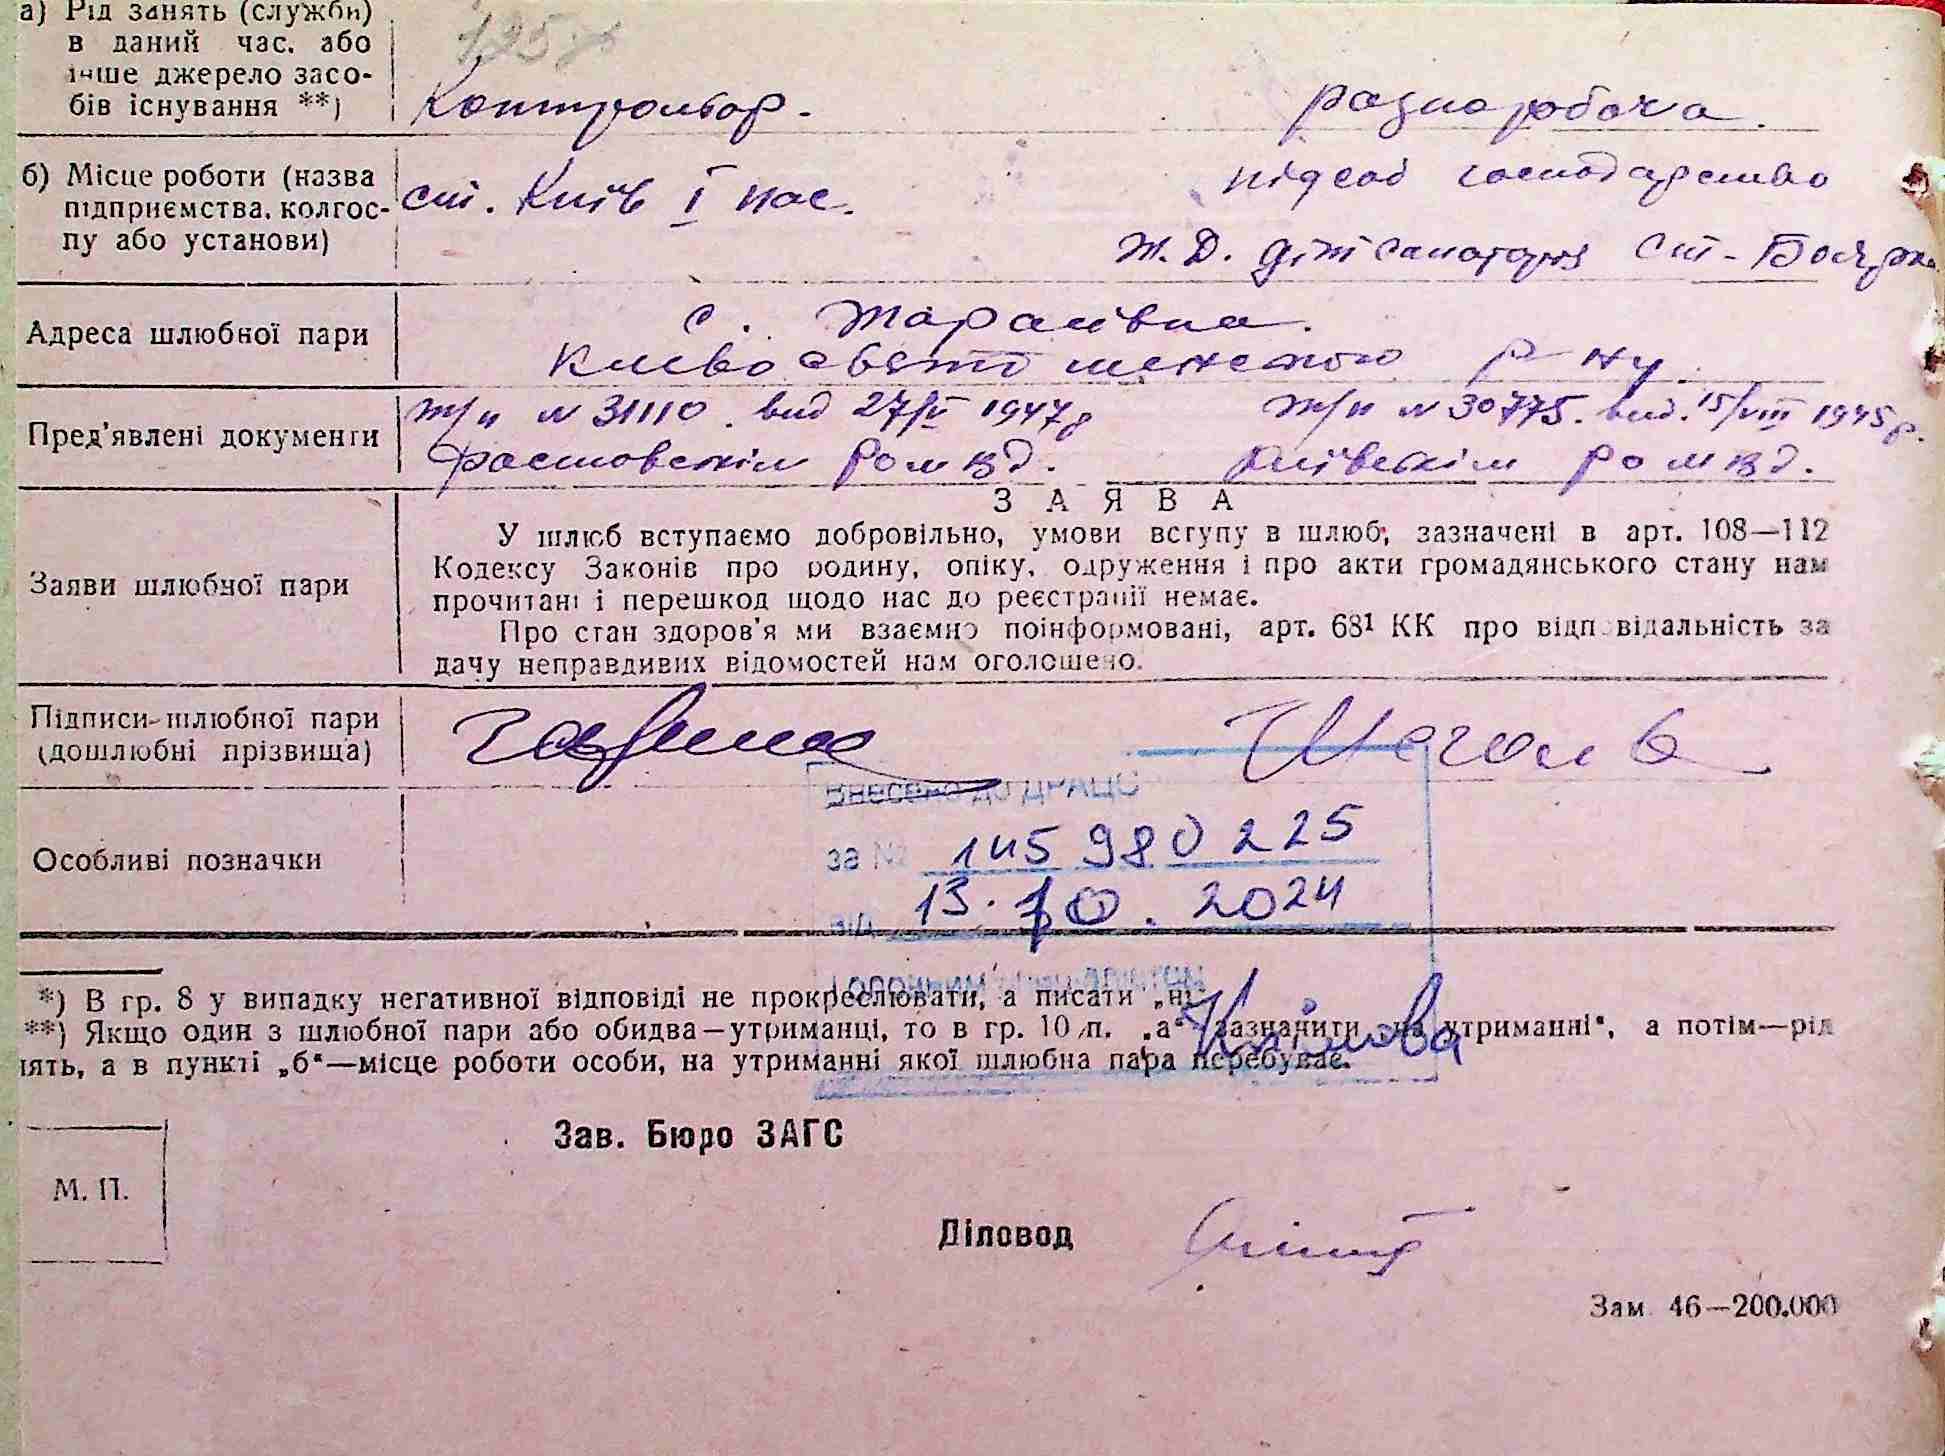 а) Рід занять (служби)
в даний час, або
інше джерело засо-
бів існування **)
125
Контрольор.
разноробоча.
б) Місце роботи (назва
підприємства, колгос-
пу або установи)
ст. Київ I пас.
підсоб господарство
Ж.Д. діт санаторія ст. Боярка
Адреса шлюбної пари
с. Тарасівка.
Києво святошинского р-ну.
Пред'явлені документи
№ 31110. вид 27/V 1947р
Фастовским РО МВД.
№ 30775. вид. 15/VIII 1945р.
Київським РО МВД.
Заяви шлюбної пари
ЗАЯВА
У шлюб вступаємо добровільно, умови вступу в шлюб, зазначені в арт. 108—112
Кодексу Законів про родину, опіку, одруження і про акти громадянського стану нам
прочитані і перешкод щодо нас до реєстрації немає.
Про стан здоров'я ми взаємно поінформовані, арт. 68¹ КК про відповідальність за
дачу неправдивих відомостей нам оголошено.
Підписи шлюбної пари
(дошлюбні прізвища)
Особливі позначки
Внесено до ДРАЦС
за № 145 980 225
від 13.10.2024
*) В гр. 8 у випадку негативної відповіді не прокреслювати, а писати „ні“
**) Якщо один з шлюбної пари або обидва—утриманці, то в гр. 10 п. „а“ зазначити „на утриманні“, а потім—рід
нять, а в пункті „б“—місце роботи особи, на утриманні якої шлюбна пара перебуває.
Зав. Бюро ЗАГС
М. П.
Діловод
Зам. 46—200.000